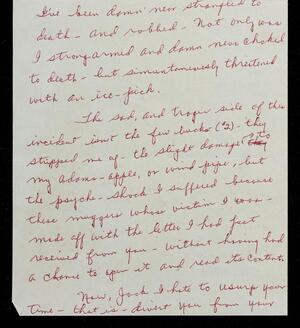 I've been damn' near strangled to
death - and robbed. Not only was
I strongarmed and damn near choked
to death - but simuntaneously threatened
with an ice-pick.
The sad, and tragic side of this
incident isn't the few bucks ($2). they
stripped me of - the slight damage to
my Adams-apple, or wind pipe, but
the psyche-shock I suffered because
these muggers whose victim I was -
made off with the letter I had just
received from you - without having had
a chance to open it and read its contents.
Now, Jack I hate to usurp your
time - that is - divert you from your